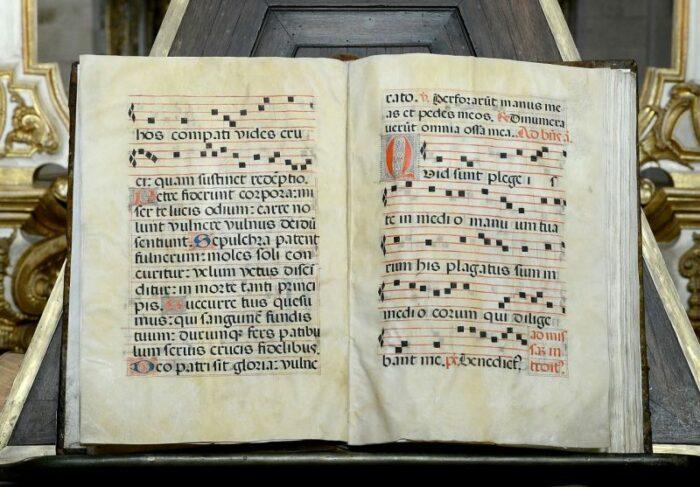 hos compati vides cru
ci: quam sustinet redēptio.
Petre fiderunt corpora: mi
ser te lucis odium: carre no
lunt vulnere vulnus
sentiunt. Sepulchra patent
fulnerum: moles soli con
cutitur: velum vetus discē
ditur: in morte tanti princi
pis. Succurre tuis quesu
mus: qui sanguinē fundis
tuum: durumqꝫ fers patibu
lum servis crucis fidelibus.
Deo patri sit gloria: vulne
rato. ℣. Perforarūt manus me
as et pedes meos. ℟. Dinumera
verūt omnia ossa mea. Ad
Quid sunt plege i s
te in medi o manu um tua
rum his plagatus sum in
medi o eorum qui dilige
bant me. ps. Benedict⁹. ad mis
sa3 in
troit⁹.